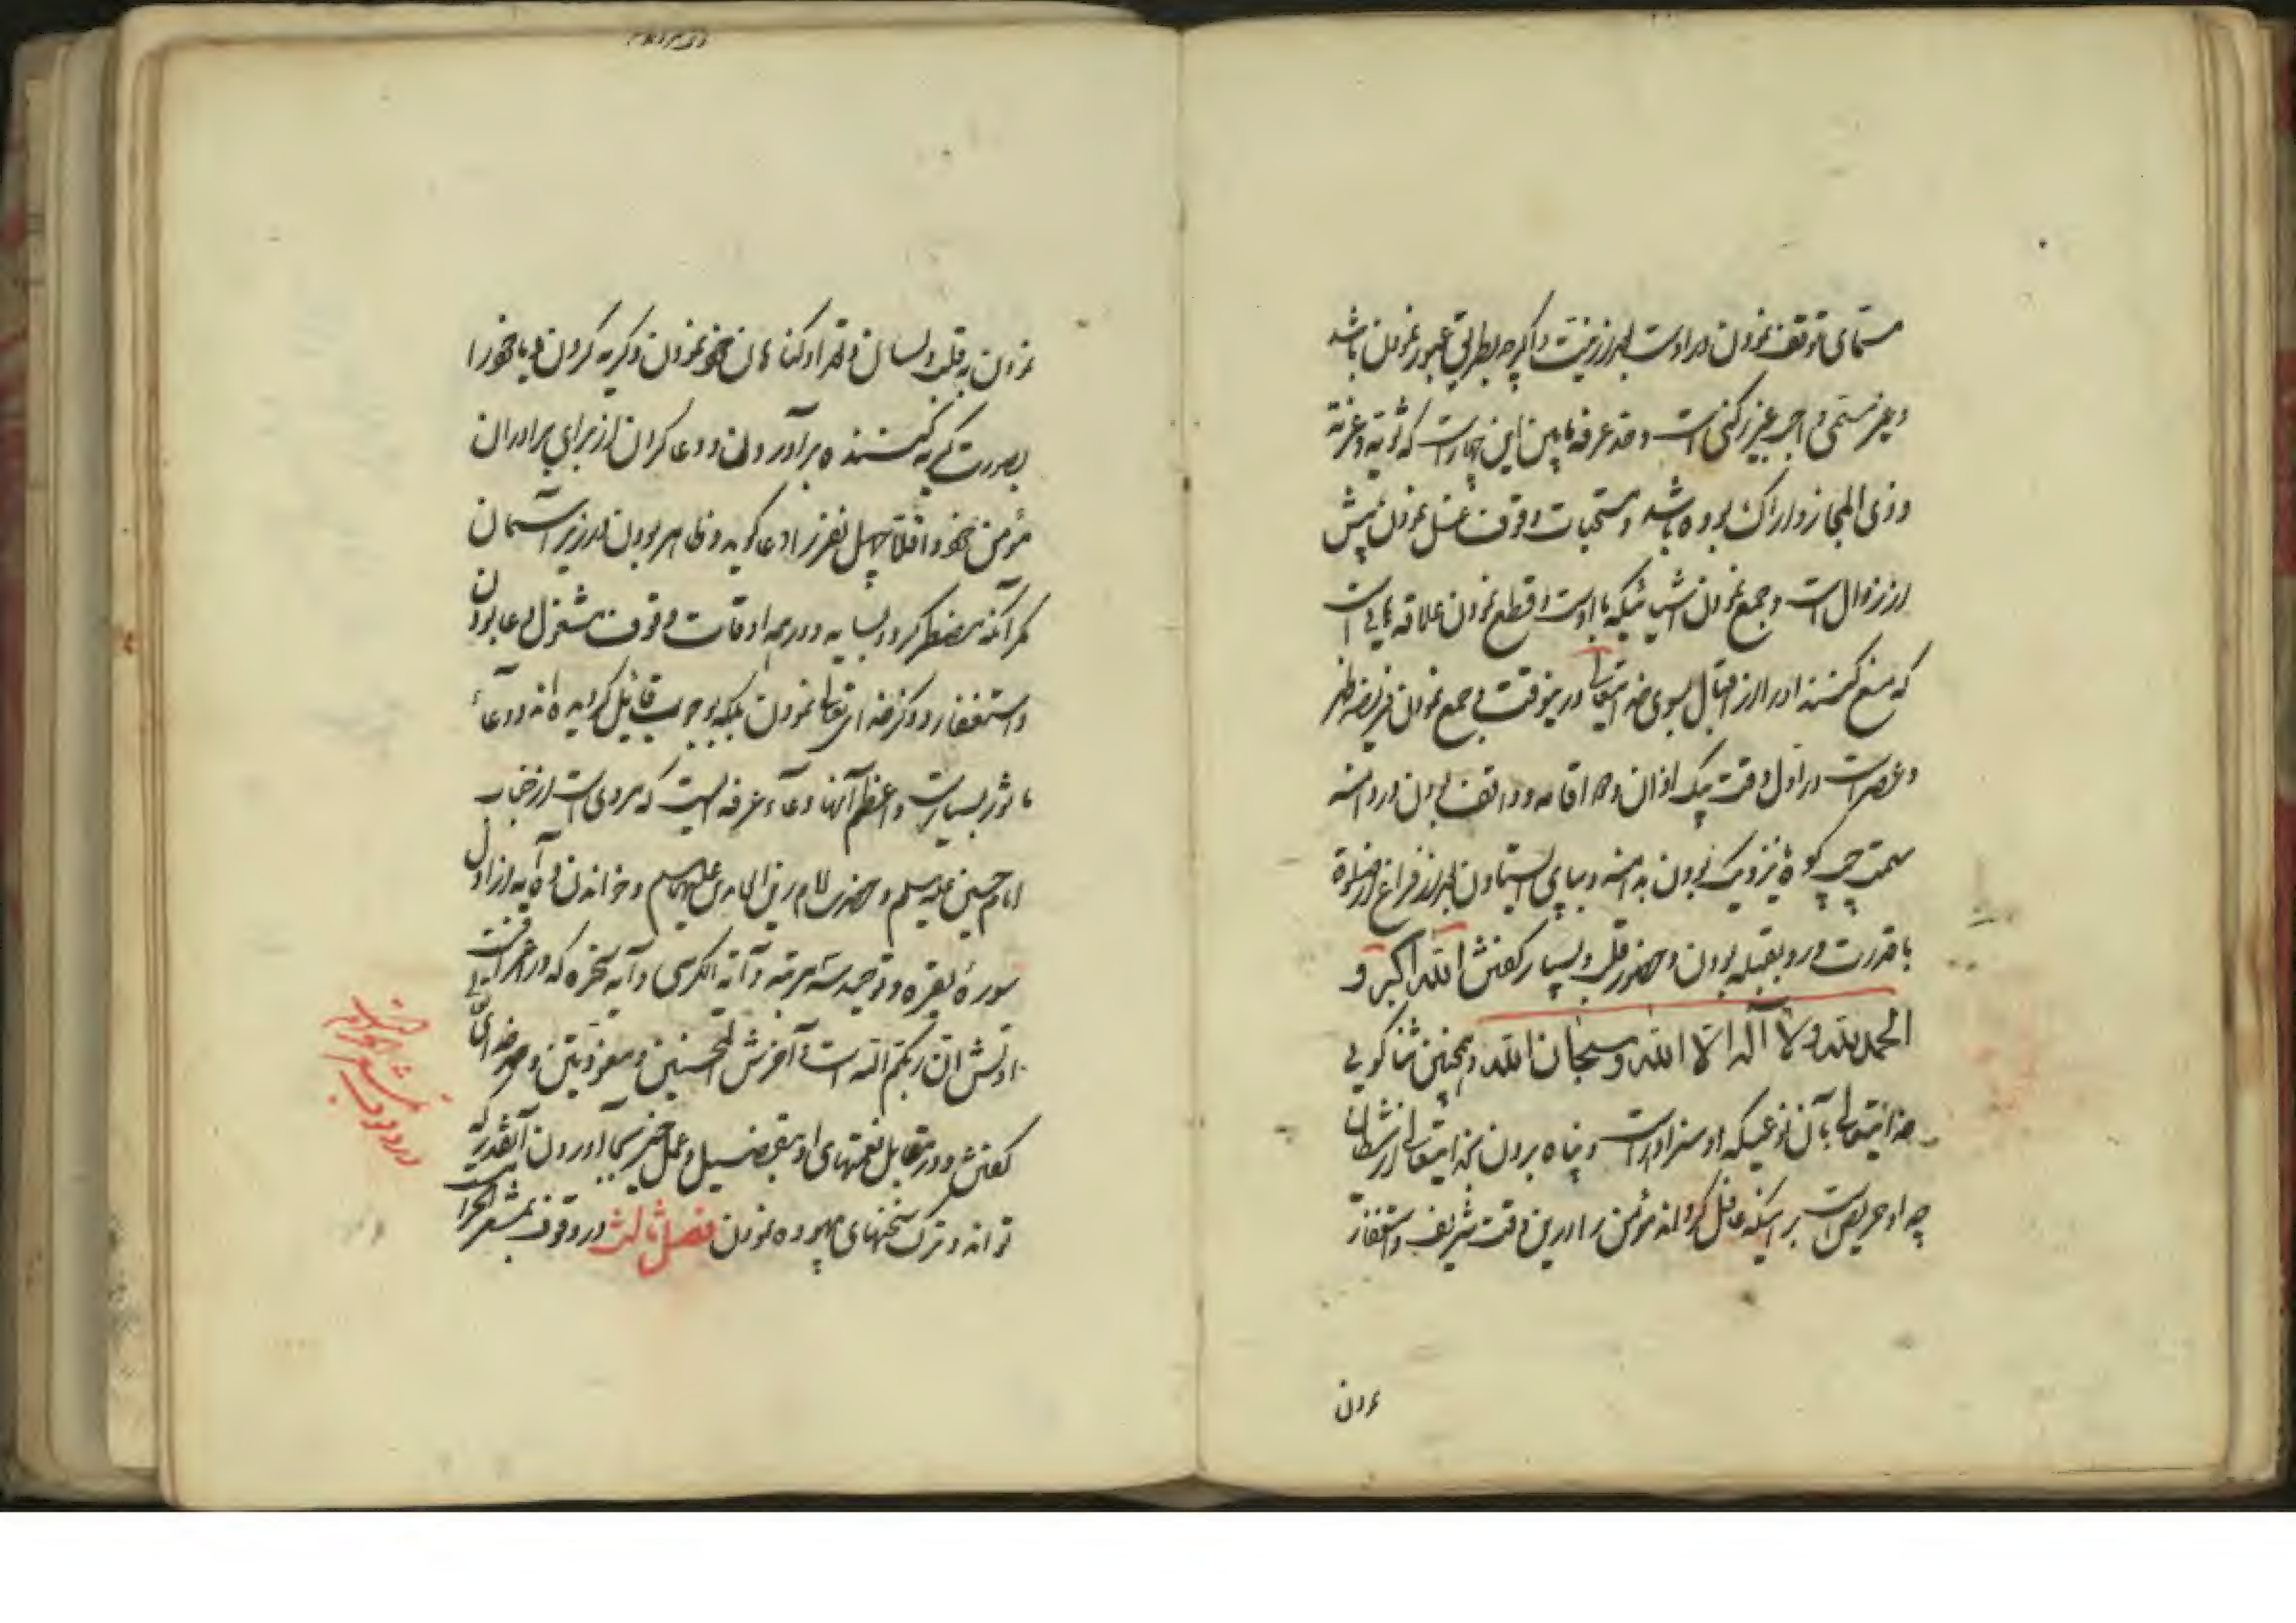 مسمای توقف نمودن در اوست بعد از نیت و اگرچه بطریق عبور نمودن باشد
و غیر مسمی واجب غیر رکنی است و حد عرفه مابین این چهار است که ثویه و عرنه
و ذی المجاز و اراک بوده باشد و مستحبات وقوف غسل نمودن پیش
از زوال است و جمع نمودن اشیائیکه با اوست و قطع نمودن علاقه هایی است
که منع کنند او را از اقبال بسوی خدایتعالی در ینوقت و جمع نمودن فریضه ظهر
و عصر است در اول وقت بیک اذان و دو اقامه و واقف بودن در دامنه
سمت چپ کوه و نزدیک بودن به دامنه و بپای ایستادن بعد از فراغ از صلوة
با قدرت و رو بقبله بودن و حضور قلب و بسیار گفتن الله اکبر و
الحمد لله و لا آله الا الله و سبحان الله و همچنین ثنا گویی
خدایتعالی بآن نوعیکه او سزاوار است و پناه بردن بخدایتعالی از شیطان
چه او حریص است بر اینکه غافل گرداند مؤمن را درین وقت شریف و استغفار
نمودن
نمودن به قلب و لسان و تعداد گناهان خود نمودن و گریه کردن و یا خود را
بصورت گریه کننده برآوردن و دعا کردن از برای برادران
مؤمن خود و اقلا چهل نفر را دعا گوید و ظاهر بودن در زیر آسمان
مگر آنکه مضطر گردد بسایه و در همه اوقات وقوف مشغول دعا بودن
و استغفار و ذکر خدای تعالی نمودن بلکه بوجوب قایل گردیده اند و دعاء
ماثور بسیار است و اعظم آنها دعاء عرفه ایست که مروی است از جناب
امام حسین علیه السلم و حضرت امام زین العابدین علیهما السلم و خواندن ده آیه از اول
سورهٔ بقره و توحید سه مرتبه و آیة الکرسی و آیه سخره که در اعراف است
اولش ان ربکم الله است و آخرش المحسنین و معوذتین و حمد خدای تعالی
گفتن در مقابل نعمتهای او بتفصیل و عمل خیر بجا آوردن آنقدر که
تواند و ترک سخنهای بیهوده نمودن فصل ثالث در وقوف بمشعر الحرام است
در وقوف بمشعر الحرام است